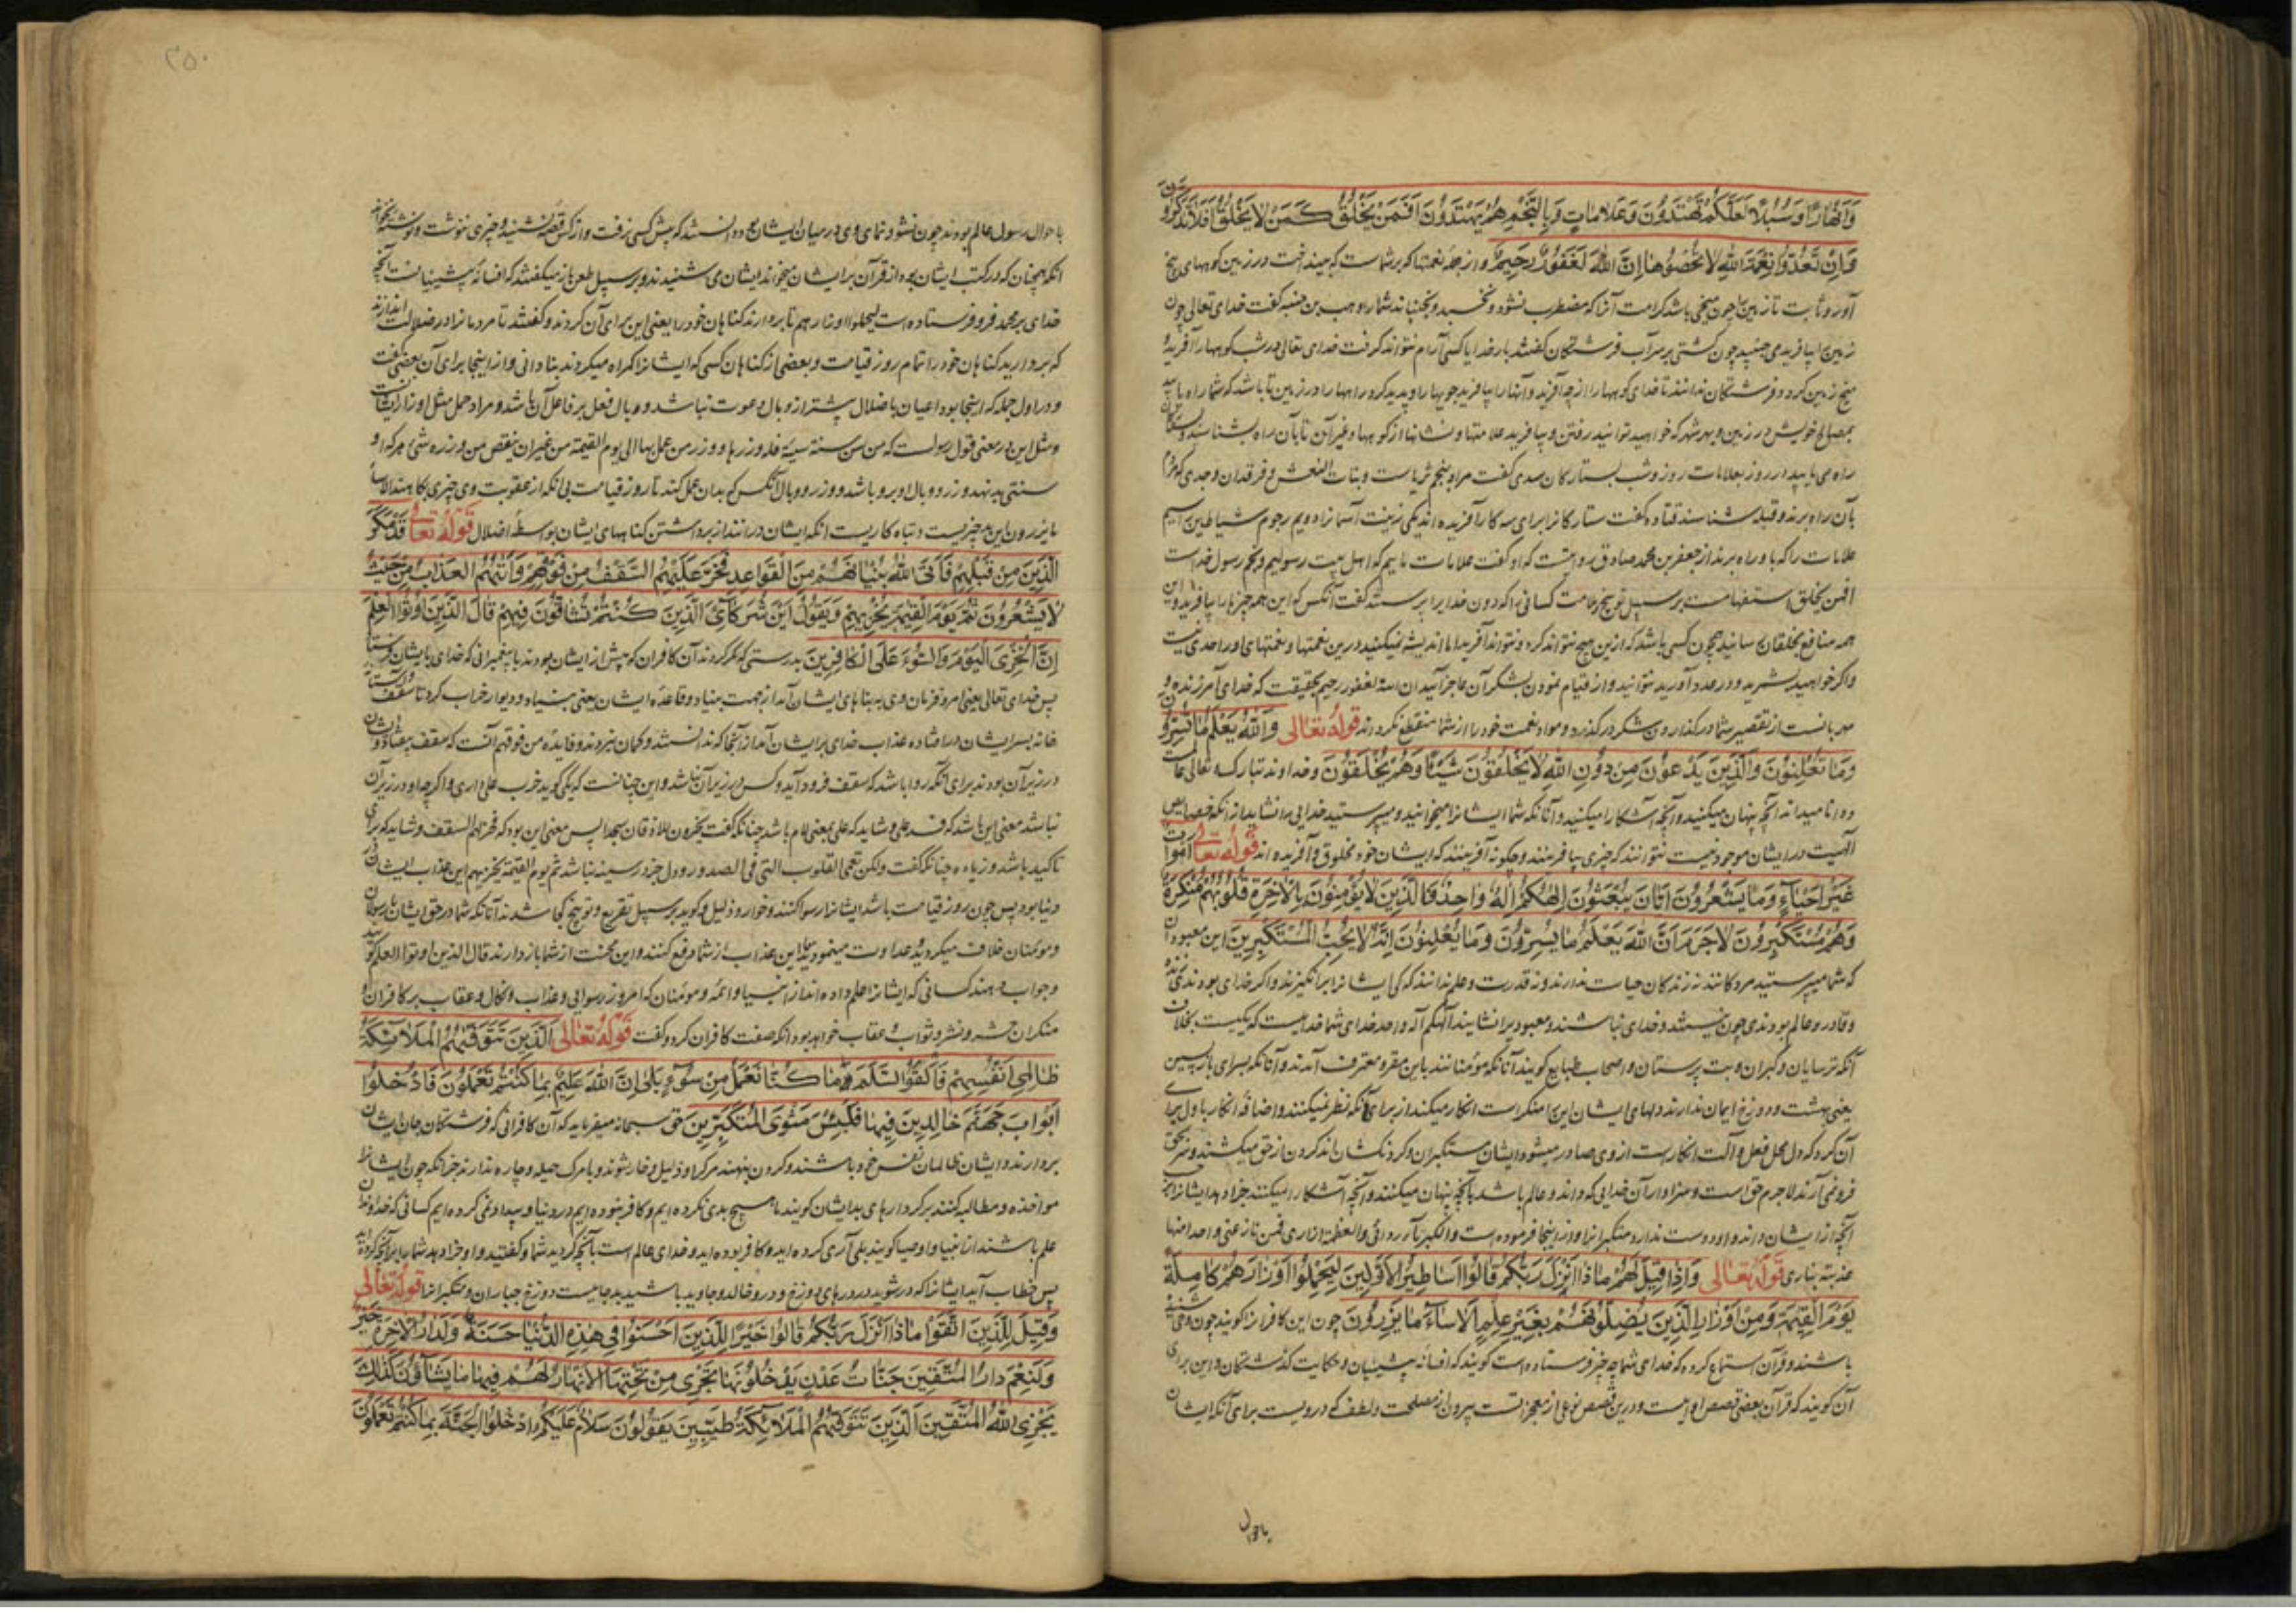 وَأَنْهَارًا وَسُبُلًا لَعَلَّكُمْ تَهْتَدُونَ وَعَلَامَاتٍ وَبِالنَّجْمِ هُمْ يَهْتَدُونَ اَفَمَنْ يَخْلُقُ كَمَنْ لَا يَخْلُقُ اَفَلَا تَذَكَّرُونَ
وَاِنْ تَعُدُّوا نِعْمَةَ اللهِ لَا تُحْصُوهَا اِنَّ اللهَ لَغَفُورٌ رَحِيمٌ و از جمله نعمتها که بر شماست که بینداخت در زمین کوههای بیخ
آور و ثابت تا زمین را چون میخی باشد کرامت آنرا که مضطرب نشود و نخسبد و نجنباند شما را وهب بن منبه گفت خدای تعالی چون
زمین را بیافرید می جنبید چون کشتی بر سر آب فرشتگان گفتند بار خدایا کسی آرام نتواند گرفت خدای تعالی در شب کوهها را آفرید
میخ زمین کرد و فرشتگان ندانند تا خدای کوهها را از چه آفرید و آنها را بیافرید جویها را و پدید کرد راهها را در زمین تا باشد که شما راه یابید
بمصالح خویش در زمین و بهر شهر که خواهید توانید رفتن و بیافرید علامتها و نشانها از کوهها و غیر آن تا بآن راه بشناسید و بستارگان
راه می یابید در روز بعلامات روز و شب بستارگان سدی گفت مراد بنجم ثریاست و بنات النعش و فرقدان و جدی که مردم
بآن راه برند و قبله شناسند قتاده گفت ستارگانرا برای سه کار آفریده اند یکی زینت آسمانرا دویم رجوم شیاطین را سیم
علامات را که باو راه برند از جعفر بن محمد صادق روایتست که او گفت علامات ماییم که اهل بیت رسولیم و نجم رسول خداست
افمن یخلق استفهامست بر سبیل توبیخ و ملامت کسانی را که دون خدایرا پرستند گفت آنکس که این همه چیزها را بیافرید و این
همه منافع بخلقان رسانید همچون کسی باشد که ازین هیچ نتواند کرد و نتواند آفرید اما اندیشه نمیکنید درین نعمتها و نعمتهای او را حدی نیست
و اگر خواهید بشمرید و در عدد آورید نتوانید و از قیام نمودن بشکر آن عاجز آئید ان الله لغفور رحیم بحقیقت که خدای آمرزنده و
مهربانست از تقصیر شما در گذاردن شکر در گذرد و مواد نعمت خود را از شما منقطع نکرداند قوله تعالی وَاللهُ يَعْلَمُ مَا تُسِرُّونَ
وَمَا تُعْلِنُونَ وَالَّذِينَ يَدْعُونَ مِنْ دُونِ اللهِ لَا يَخْلُقُونَ شَيْئًا وَهُمْ يُخْلَقُونَ و خداوند تبارک و تعالی عالمست
و دانا میداند آنچه پنهان میکنید و آنچه آشکارا میکنید و آنانکه شما ایشانرا میخوانید و میپرستید خدایی را نشاید از آنکه خصایص
الهیت در ایشان موجود نیست نتوانند که چیزی بیافرینند و چگونه آفرینند که ایشان خود مخلوق و آفریده اند قوله تعالی اَمْوَاتٌ
غَيْرُ اَحْيَاءٍ وَمَا يَشْعُرُونَ اَيَّانَ يُبْعَثُونَ اِلٰهُكُمْ اِلٰهٌ وَاحِدٌ فَالَّذِينَ لَا يُؤْمِنُونَ بِالْآخِرَةِ قُلُوبُهُمْ مُنْكِرَةٌ
وَهُمْ مُسْتَكْبِرُونَ لَا جَرَمَ اَنَّ اللهَ يَعْلَمُ مَا يُسِرُّونَ وَمَا يُعْلِنُونَ اِنَّهُ لَا يُحِبُّ الْمُسْتَكْبِرِينَ این معبودان
که شما میپرستید مردگانند نه زندگان حیات ندارند و نه قدرت و علم ندانند که کی ایشانرا برانگیزند و اگر خدای بودندی زنده
و قادر و عالم بودندی چون نیستند خدای نباشند و معبودیرا نشایند الهکم اله واحد خدای شما خداییست که یکیست بخلاف
آنکه ترسایان و گبران و بت پرستان و اصحاب طبایع گویند آنانکه مؤمنانند باین مقر و معترف آمدند و آنانکه بسرای بازپسین
یعنی بهشت و دوزخ ایمان ندارند دلهای ایشان این را منکر است انکار میکنند از برای آنکه نظر نمیکنند و اضافه انکار با دل برای
آن کرد که دل محل فعل و آلت انکار است از وی صادر میشود و ایشان مستکبران و گردنکشان اند گردن از حق میکشند و سر بحق
فرو نمی آرند لا جرم حق است و سزاوار آن خدایی که داند و عالم باشد بآنچه پنهان میکنند و آنچه آشکارا میکنند جزا دهد ایشانرا بر
آنچه از ایشان داند و او دوست ندارد متکبرانرا و از اینجا فرموده است والکبریاء ردائی والعظمة ازاری فمن نازعنی واحدا منها
عذبته بناری قوله تعالی وَاِذَا قِيلَ لَهُمْ مَاذَا اَنْزَلَ رَبُّكُمْ قَالُوا اَسَاطِيرُ الْاَوَّلِينَ لِيَحْمِلُوا اَوْزَارَهُمْ كَامِلَةً
يَوْمَ الْقِيٰمَةِ وَمِنْ اَوْزَارِ الَّذِينَ يُضِلُّونَهُمْ بِغَيْرِ عِلْمٍ اَلَا سَاءَ مَا يَزِرُونَ چون این کافرانرا گویند چون وحی شنیده
باشند و قرآن استماع کرده که خدای شما چه چیز فرستاده است گویند که افسانه پیشینیان و حکایت گذشتگان و این برای
آن گویند که قرآن بعضی قصص اولیست و درین قصص نوعی از معجز است بیرون از مصلحت و لطف که درویست برای آنکه ایشان
باحوال
۲۵۰
باحوال رسول عالم بودند چون نشو و نمای وی در میان ایشان بود دانستند که پیش کسی نرفت و از کس قصه نشنید و چیزی ننوشت و نوشته نخواند
آنگه همچنان که در کتب ایشان بود از قرآن بر ایشان میخواند ایشان می شنیدند و بر سبیل طعن باز میگفتند که افسانه پیشینیانست آنچه
خدای بر محمد فرو فرستاده است لیحملوا اوزارهم تا بردارند گناهان خود را یعنی این برای آن کردند و گفتند تا مردمانرا در ضلالت اندازند
که بردارید گناهان خود را تمام روز قیامت و بعضی از گناهان کسی که ایشانرا گمراه میکردند بنادانی و از اینجا برای آن بعضی گفت
و در اول جمله که اینجا بود اعیان باضلال بیشتر از وبال دعوت نباشد و وبال فعل بر فاعل آن باشد و مراد حمل مثل اوزار ایشانست
و مثل این در معنی قول رسولست که من سن سنة سیئة فله وزرها و وزر من عمل بها الی یوم القیمة من غیر ان ینقص من وزره شئ هر که او
سنتی بد نهد وزر و وبال او برو باشد و وزر و وبال آنکس که بدان عمل کند تا روز قیامت بی آنکه از عقوبت وی چیزی بکاهند الا ساء
ما یزرون این بد چیزیست و تباه کاریست آنکه ایشان درانند از برداشتن گناههای ایشان بواسطه اضلال قوله تعالی قَدْ مَكَرَ
الَّذِينَ مِنْ قَبْلِهِمْ فَاَتَى اللهُ بُنْيَانَهُمْ مِنَ الْقَوَاعِدِ فَخَرَّ عَلَيْهِمُ السَّقْفُ مِنْ فَوْقِهِمْ وَاَتٰيهُمُ الْعَذَابُ مِنْ حَيْثُ
لَا يَشْعُرُونَ ثُمَّ يَوْمَ الْقِيٰمَةِ يُخْزِيهِمْ وَيَقُولُ اَيْنَ شُرَكَائِيَ الَّذِينَ كُنْتُمْ تُشَاقُّونَ فِيهِمْ قَالَ الَّذِينَ اُوتُوا الْعِلْمَ
اِنَّ الْخِزْيَ الْيَوْمَ وَالسُّوءَ عَلَى الْكَافِرِينَ بدرستی که مکر کردند آن کافران که پیش از ایشان بودند با پیغمبرانی که خدای بایشان فرستاد
پس خدای تعالی یعنی امر و فرمان وی به بناهای ایشان آمد از جهت بنیاد و قاعده ایشان یعنی بنیاد و دیوار خراب کرد تا سقف
خانه بسر ایشان درافتاد و عذاب خدای بر ایشان آمد از آنجا که ندانستند و گمان نبردند و فایده من فوقهم آنست که سقف بیفتاد و ایشان
در زیر آن بودند برای آنکه روا باشد که سقف فرود آید و کس در زیر آن نباشد و این چنانست که یکی گوید خرب علی داری و اگر چه او در زیر آن
نباشد معنی این باشد که فسد علی و شاید که علی بمعنی لام باشد چنانکه گفت یخرون للاذقان سجدا پس معنی این بود که فخر لهم السقف و شاید که برای
تاکید باشد و زیاده چنانکه گفت ولکن تعمی القلوب التی فی الصدور و دل جز در سینه نباشد ثم یوم القیمة یخزیهم این عذاب ایشان
دنیا بود پس چون روز قیامت باشد ایشانرا رسوا کنند و خوار و ذلیل و گوید بر سبیل تقریع و توبیخ کجا شدند آنانکه شما در حق ایشان با رسولان
و مؤمنان خلاف میکردید و عداوت مینمودید تا این عذاب از شما دفع کنند و این محنت از شما باز دارند قال الذین اوتوا العلم گویند
و جواب دهند کسانی که ایشانرا علم داده اند از انبیا و ائمه و مؤمنان که امروز رسوایی و عذاب و نکال و عقاب بر کافران و
منکران حشر و نشر و ثواب و عقاب خواهد بود آنگه صفت کافران کرد و گفت قوله تعالی اَلَّذِينَ تَتَوَفّٰيهُمُ الْمَلَائِكَةُ
ظَالِمِي اَنْفُسِهِمْ فَاَلْقَوُا السَّلَمَ مَا كُنَّا نَعْمَلُ مِنْ سُوءٍ بَلٰى اِنَّ اللهَ عَلِيمٌ بِمَا كُنْتُمْ تَعْمَلُونَ فَادْخُلُوا
اَبْوَابَ جَهَنَّمَ خَالِدِينَ فِيهَا فَلَبِئْسَ مَثْوَى الْمُتَكَبِّرِينَ حق سبحانه میفرماید که آن کافرانی که فرشتگان جان ایشان
بردارند و ایشان ظالمان نفس خود باشند و گردن بنهند مرگ را و ذلیل و خار شوند و با مرگ حیله و چاره ندارند جز آنکه چون ایشانرا
مواخذه و مطالبه کنند بر کردارهای بد ایشان گویند ما هیچ بدی نکرده ایم و کافر نبوده ایم در دنیا و بیداد نمی کرده ایم کسانی که خداوندان
علم باشند از انبیا و اوصیا گویند بلی آری کرده اید و کافر بوده اید و خدای عالم است بآنچه کردید شما و گفتید و او جزا دهد شما را بر آنچه کرده اید
پس خطاب آید ایشانرا که در شوید در درهای دوزخ و درو خالد و جاوید باشید بد جاییست دوزخ جباران و متکبرانرا قوله تعالی
وَقِيلَ لِلَّذِينَ اتَّقَوْا مَاذَا اَنْزَلَ رَبُّكُمْ قَالُوا خَيْرًا لِلَّذِينَ اَحْسَنُوا فِي هٰذِهِ الدُّنْيَا حَسَنَةٌ وَلَدَارُ الْآخِرَةِ خَيْرٌ
وَلَنِعْمَ دَارُ الْمُتَّقِينَ جَنَّاتُ عَدْنٍ يَدْخُلُونَهَا تَجْرِي مِنْ تَحْتِهَا الْاَنْهَارُ لَهُمْ فِيهَا مَا يَشَاؤُنَ كَذٰلِكَ
يَجْزِي اللهُ الْمُتَّقِينَ اَلَّذِينَ تَتَوَفّٰيهُمُ الْمَلَائِكَةُ طَيِّبِينَ يَقُولُونَ سَلَامٌ عَلَيْكُمُ ادْخُلُوا الْجَنَّةَ بِمَا كُنْتُمْ تَعْمَلُونَ